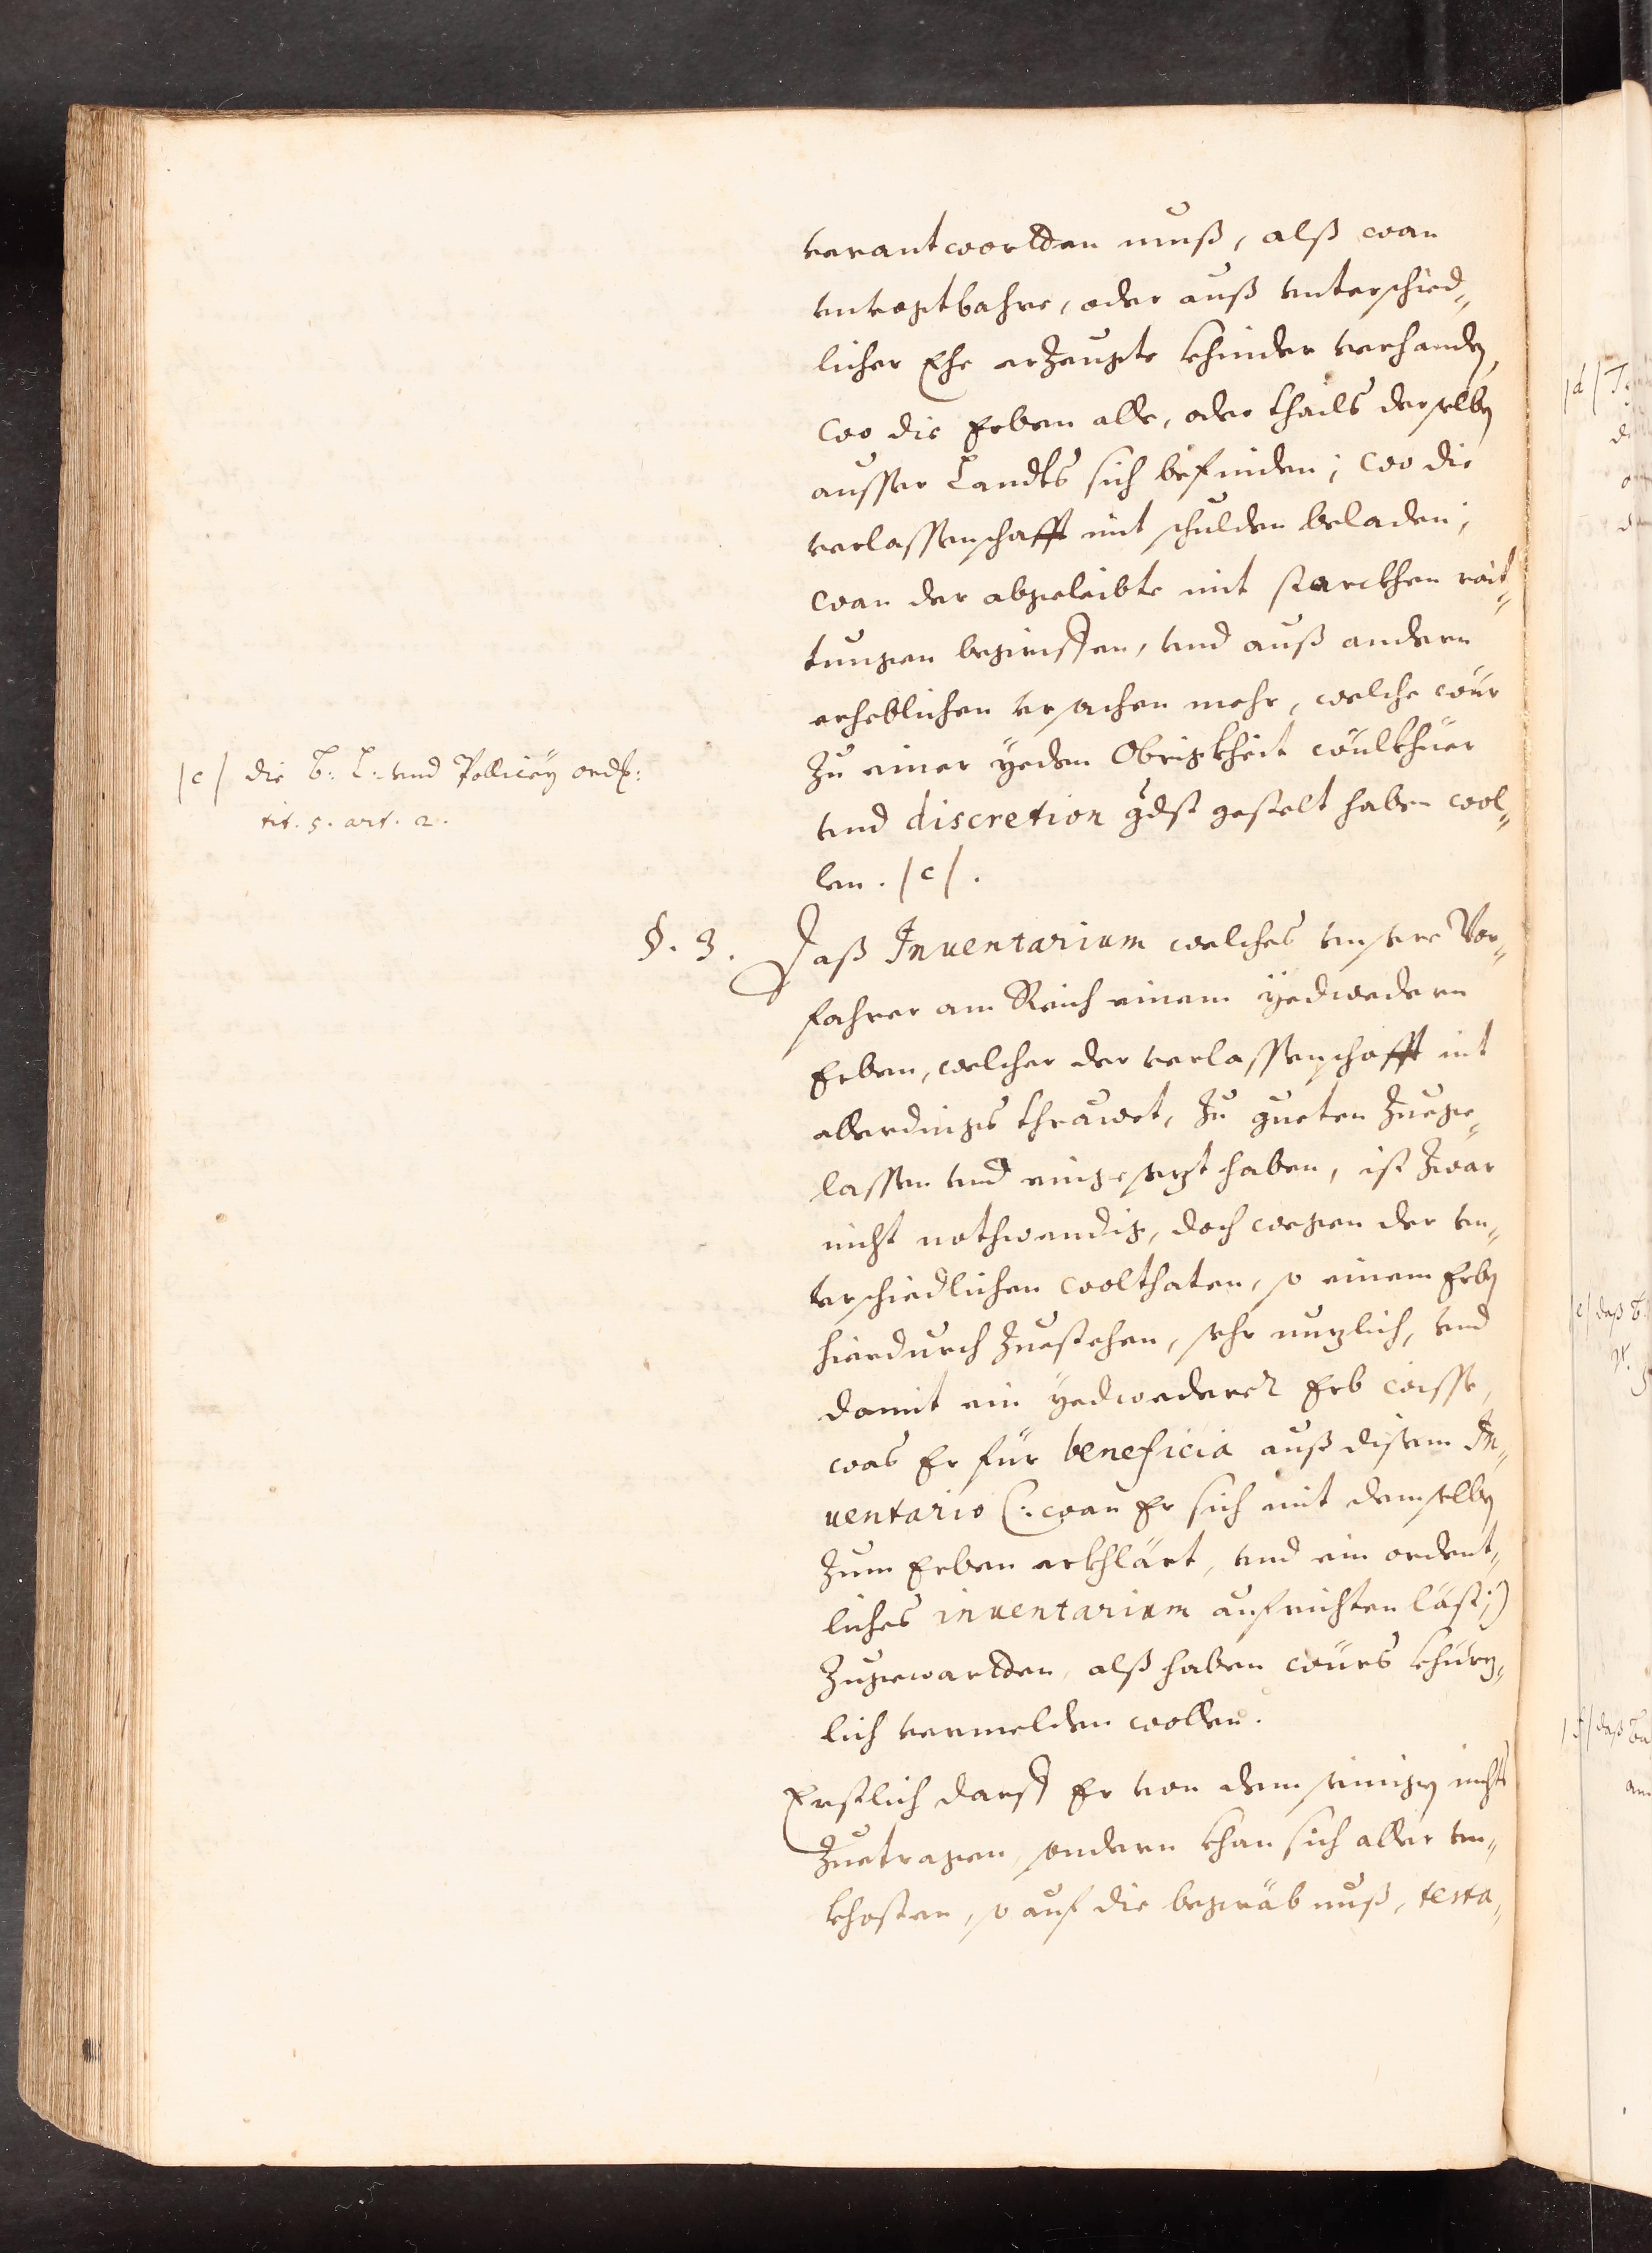 verantwortten muß, alß wan
unvogtbahre, oder auß unterschid„
licher Ehe erzeugte khinder verhanden,
wo die Erben alle, oder theils derselben
ausser Landts sich befinden; wo die
verlassenschafft mit schulden beladen;
wan der abgeleibte mit starckhen rait„
tungen begriffen, und auß andern
erheblichen ursachen mehr, welche wür
zu einer yeden Obrigkheit wüllkhuer
und discretion gdst gestelt haben wol„
len. /c/.
/c/ die T: L: und Pollicey ordt:
tit. 5. art. 2.
§. 3. Daß Inuentarium welches unsere Vor„
fahrer am Reich einem yedwedern
Erben, welcher der verlassenschafft nit
allerdings thrauet, zu gueten zuege„
lassen und eingesezt haben, ist zwar
nicht nothwendig, doch wegen der un„
terschiedlichen wolthaten, so einem Erben
hierdurch zuestehen, sehr nuzlich, und
damit ein yedwederer Erb wisse,
was Er für beneficia auß disem In„
uentario (: wan Er sich mit demselben
zum Erben erkhlärt, und ein ordent„
liches inuentarium aufrichten läst;)
zugewartten, alß haben würs khürz„
lich vermelden wollen.
Erstlich darff Er von dem seinigen nichts
zuetragen, sondern khan sich aller un„
khosten, so auf die begräbnuß, testa„
/d/
/e/ daß T.
/f/ daß